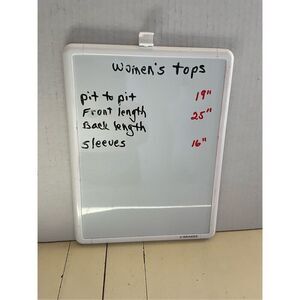 women's tops
pit to pit 19"
Front length 25"
Back length
sleeves 16"